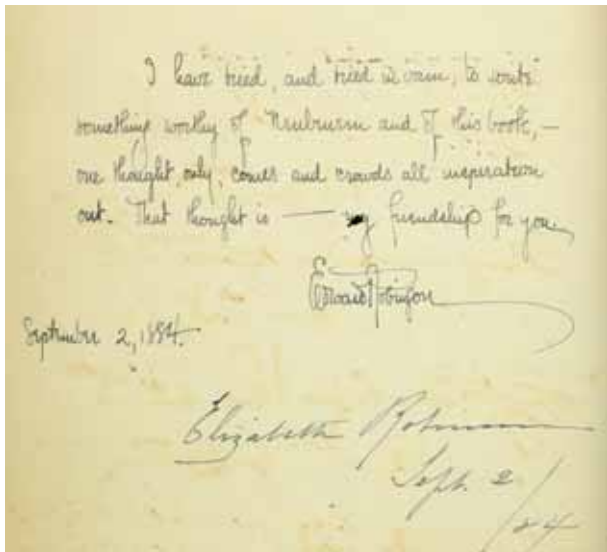 I have tried, and tried in vain, to write
something worthy of and of this book, —
one thought, only, comes and crowds all inspiration
out. That thought is — my friendship for you.
Edward Robinson
September 2, 1884.
Elizabeth Robinson
Sept. 2
/84